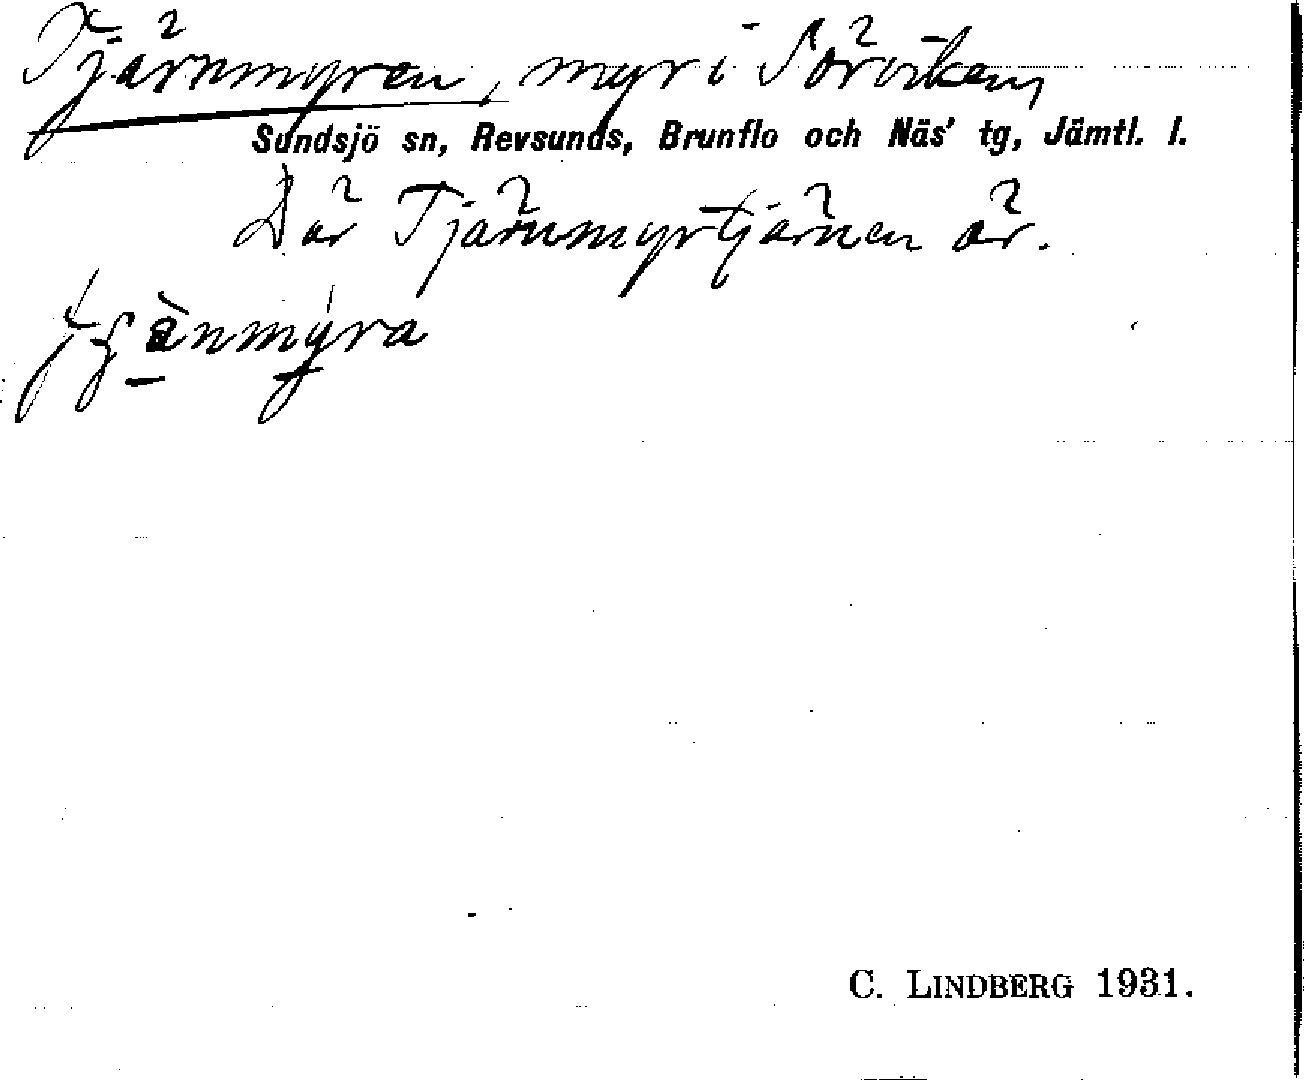 Tjärnmyren, myr i Sörviken,
Sundsjö sn, Revsunds, Brunflo och Näs' tg, Jämtl. l.
Där Tjärnmyrtjärnen är.
C. LINDBERG 1931.